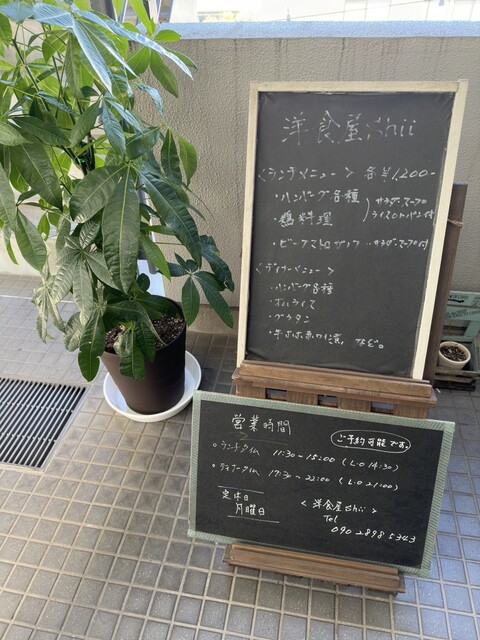 洋食屋Shii
<ランチメニュー> 各¥1,200-
・ハンバーグ各種
・鶏料理
サラダ・スープ
ライスorパン付
・ビーフストロガノフ サラダ・スープ付
<ディナーメニュー>
・ハンバーグ各種
・オムライス
・グラタン
・牛ほほ赤ワイン煮, など。
営業時間
ご予約可能です。
○ランチタイム 11:30-15:00 (L:O 14:30)
○ディナータイム 17:30-22:00 (L:O 21:00)
定休日
月曜日
<洋食屋Shii>
Tel
090 2898 5343